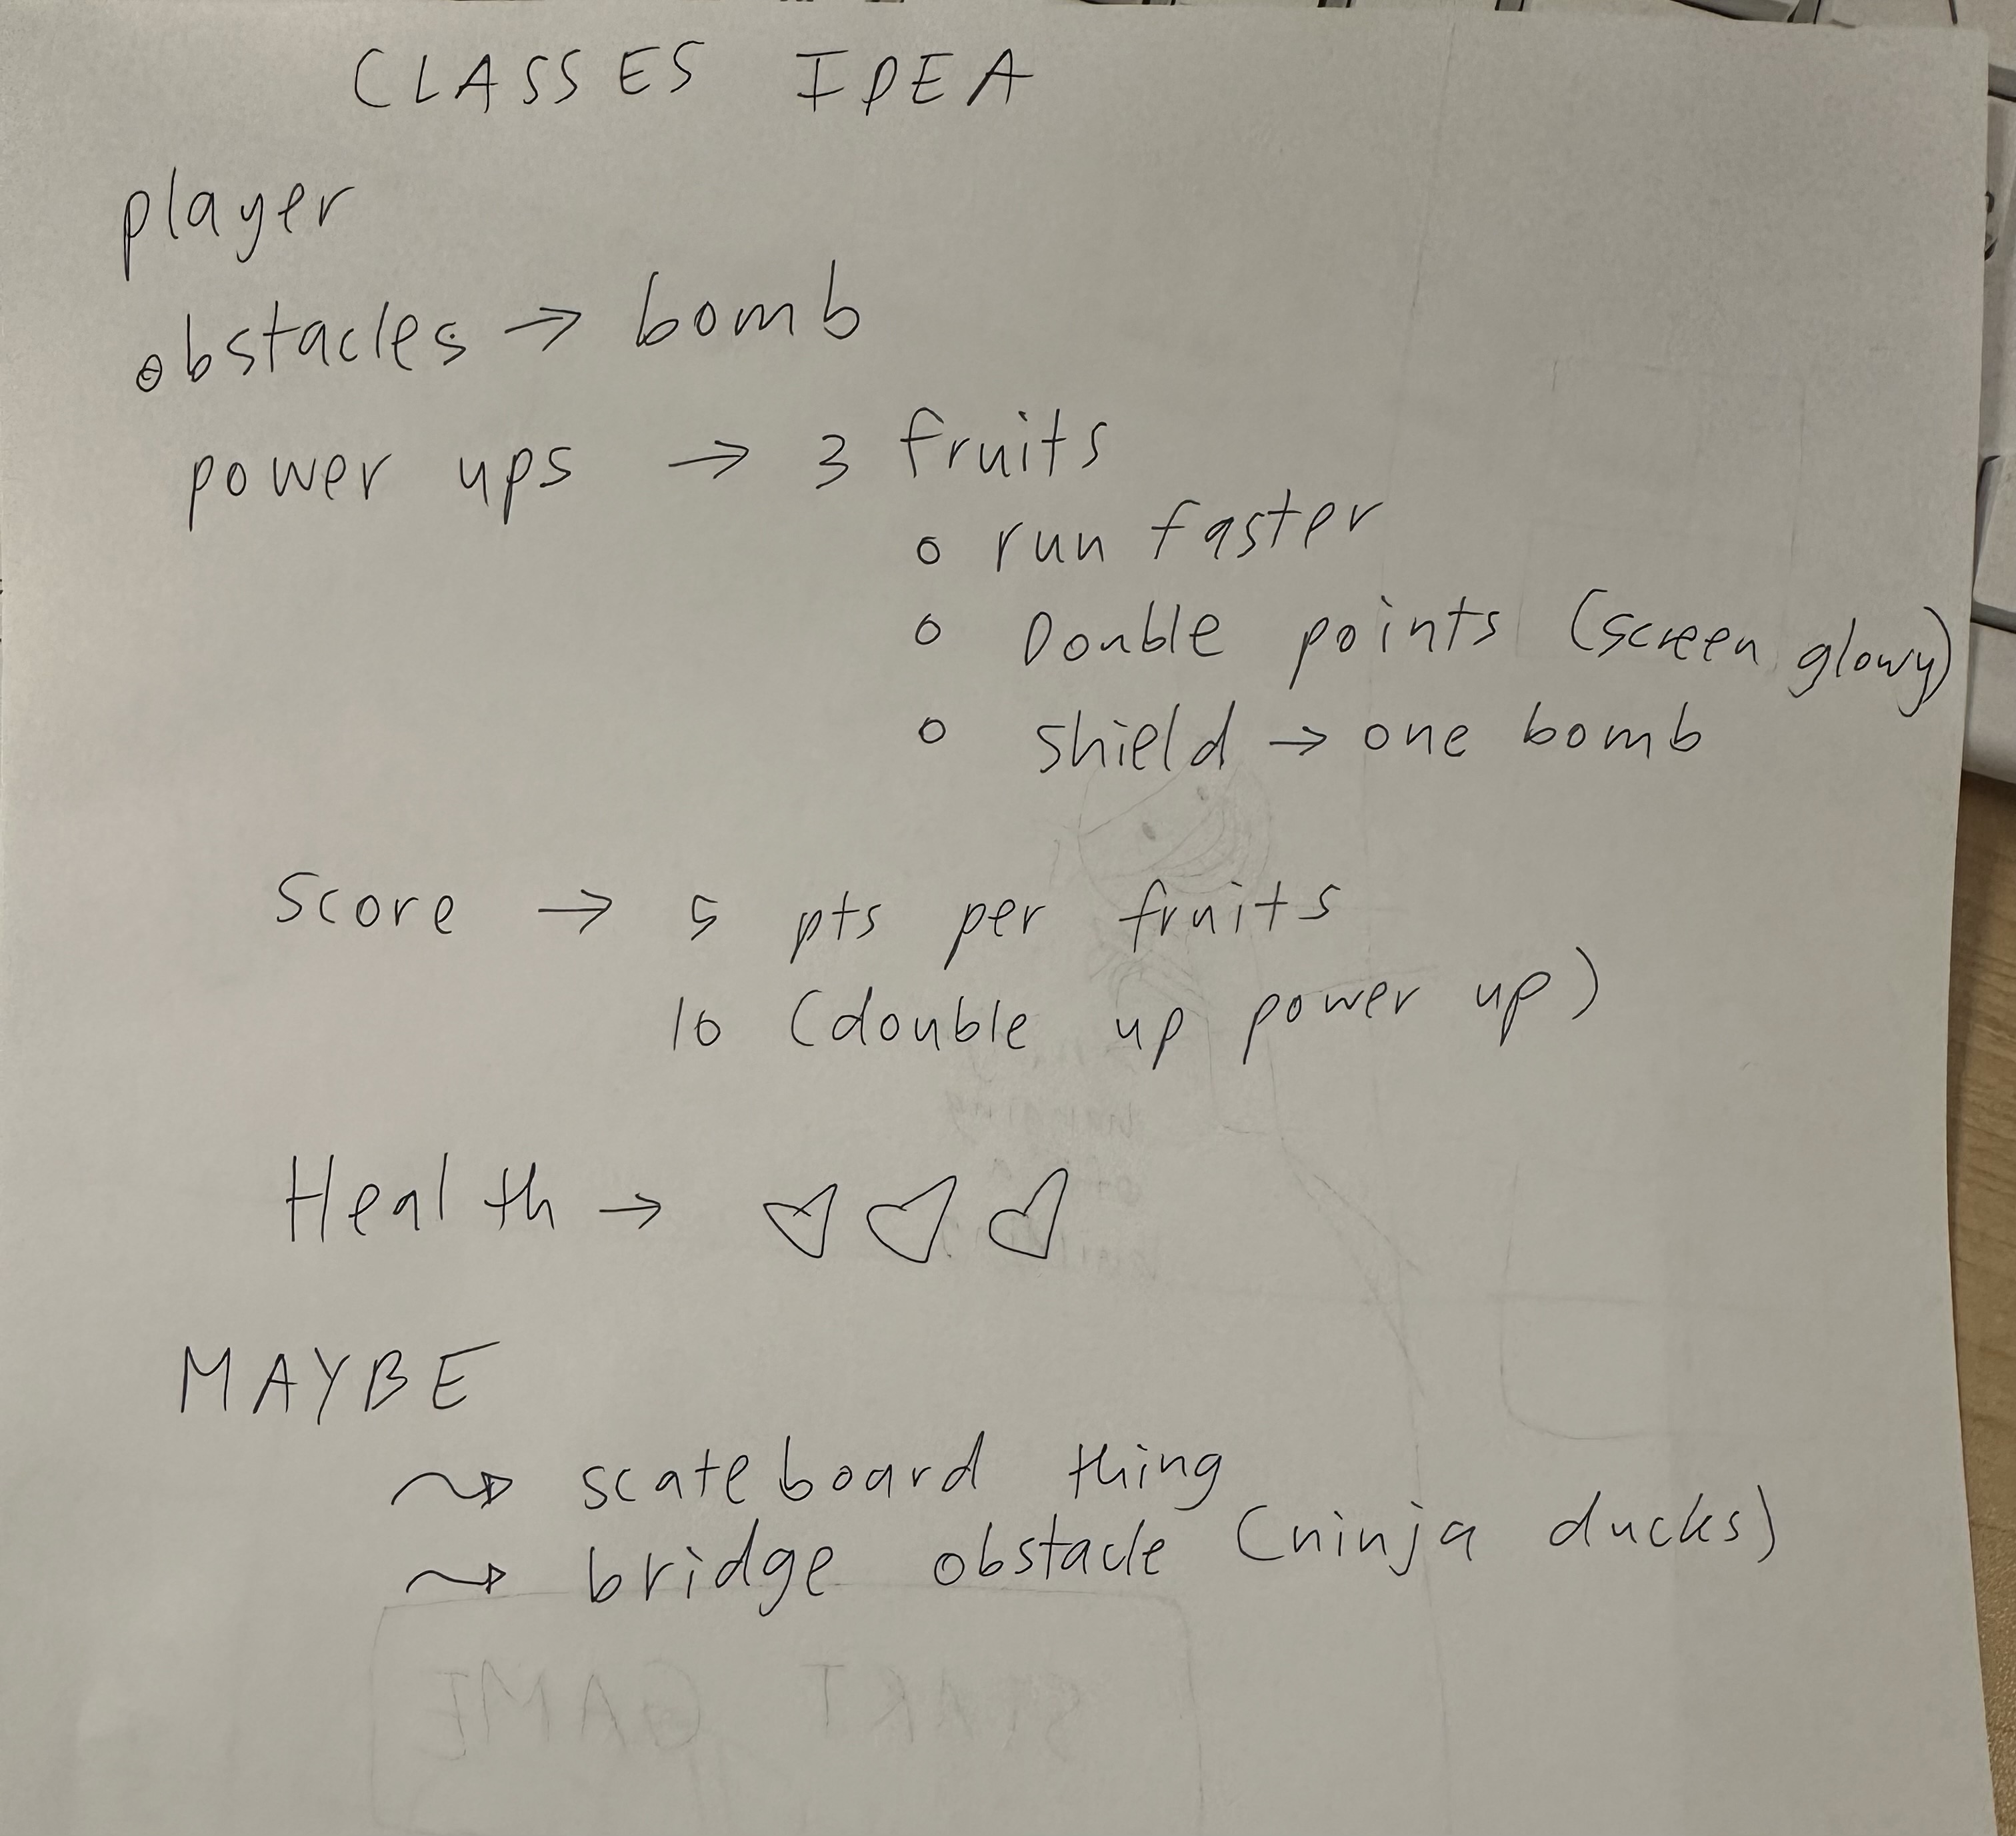 CLASSES IDEA
player
obstacles → bomb
power ups → 3 fruits
o run faster
o Double points (screen glowy)
o shield → one bomb
Score → 5 pts per fruits
10 (double up power up)
Health → ♡ ♡ ♡
MAYBE
⇝ scateboard thing
⇝ bridge obstacle (ninja ducks)
START GAME